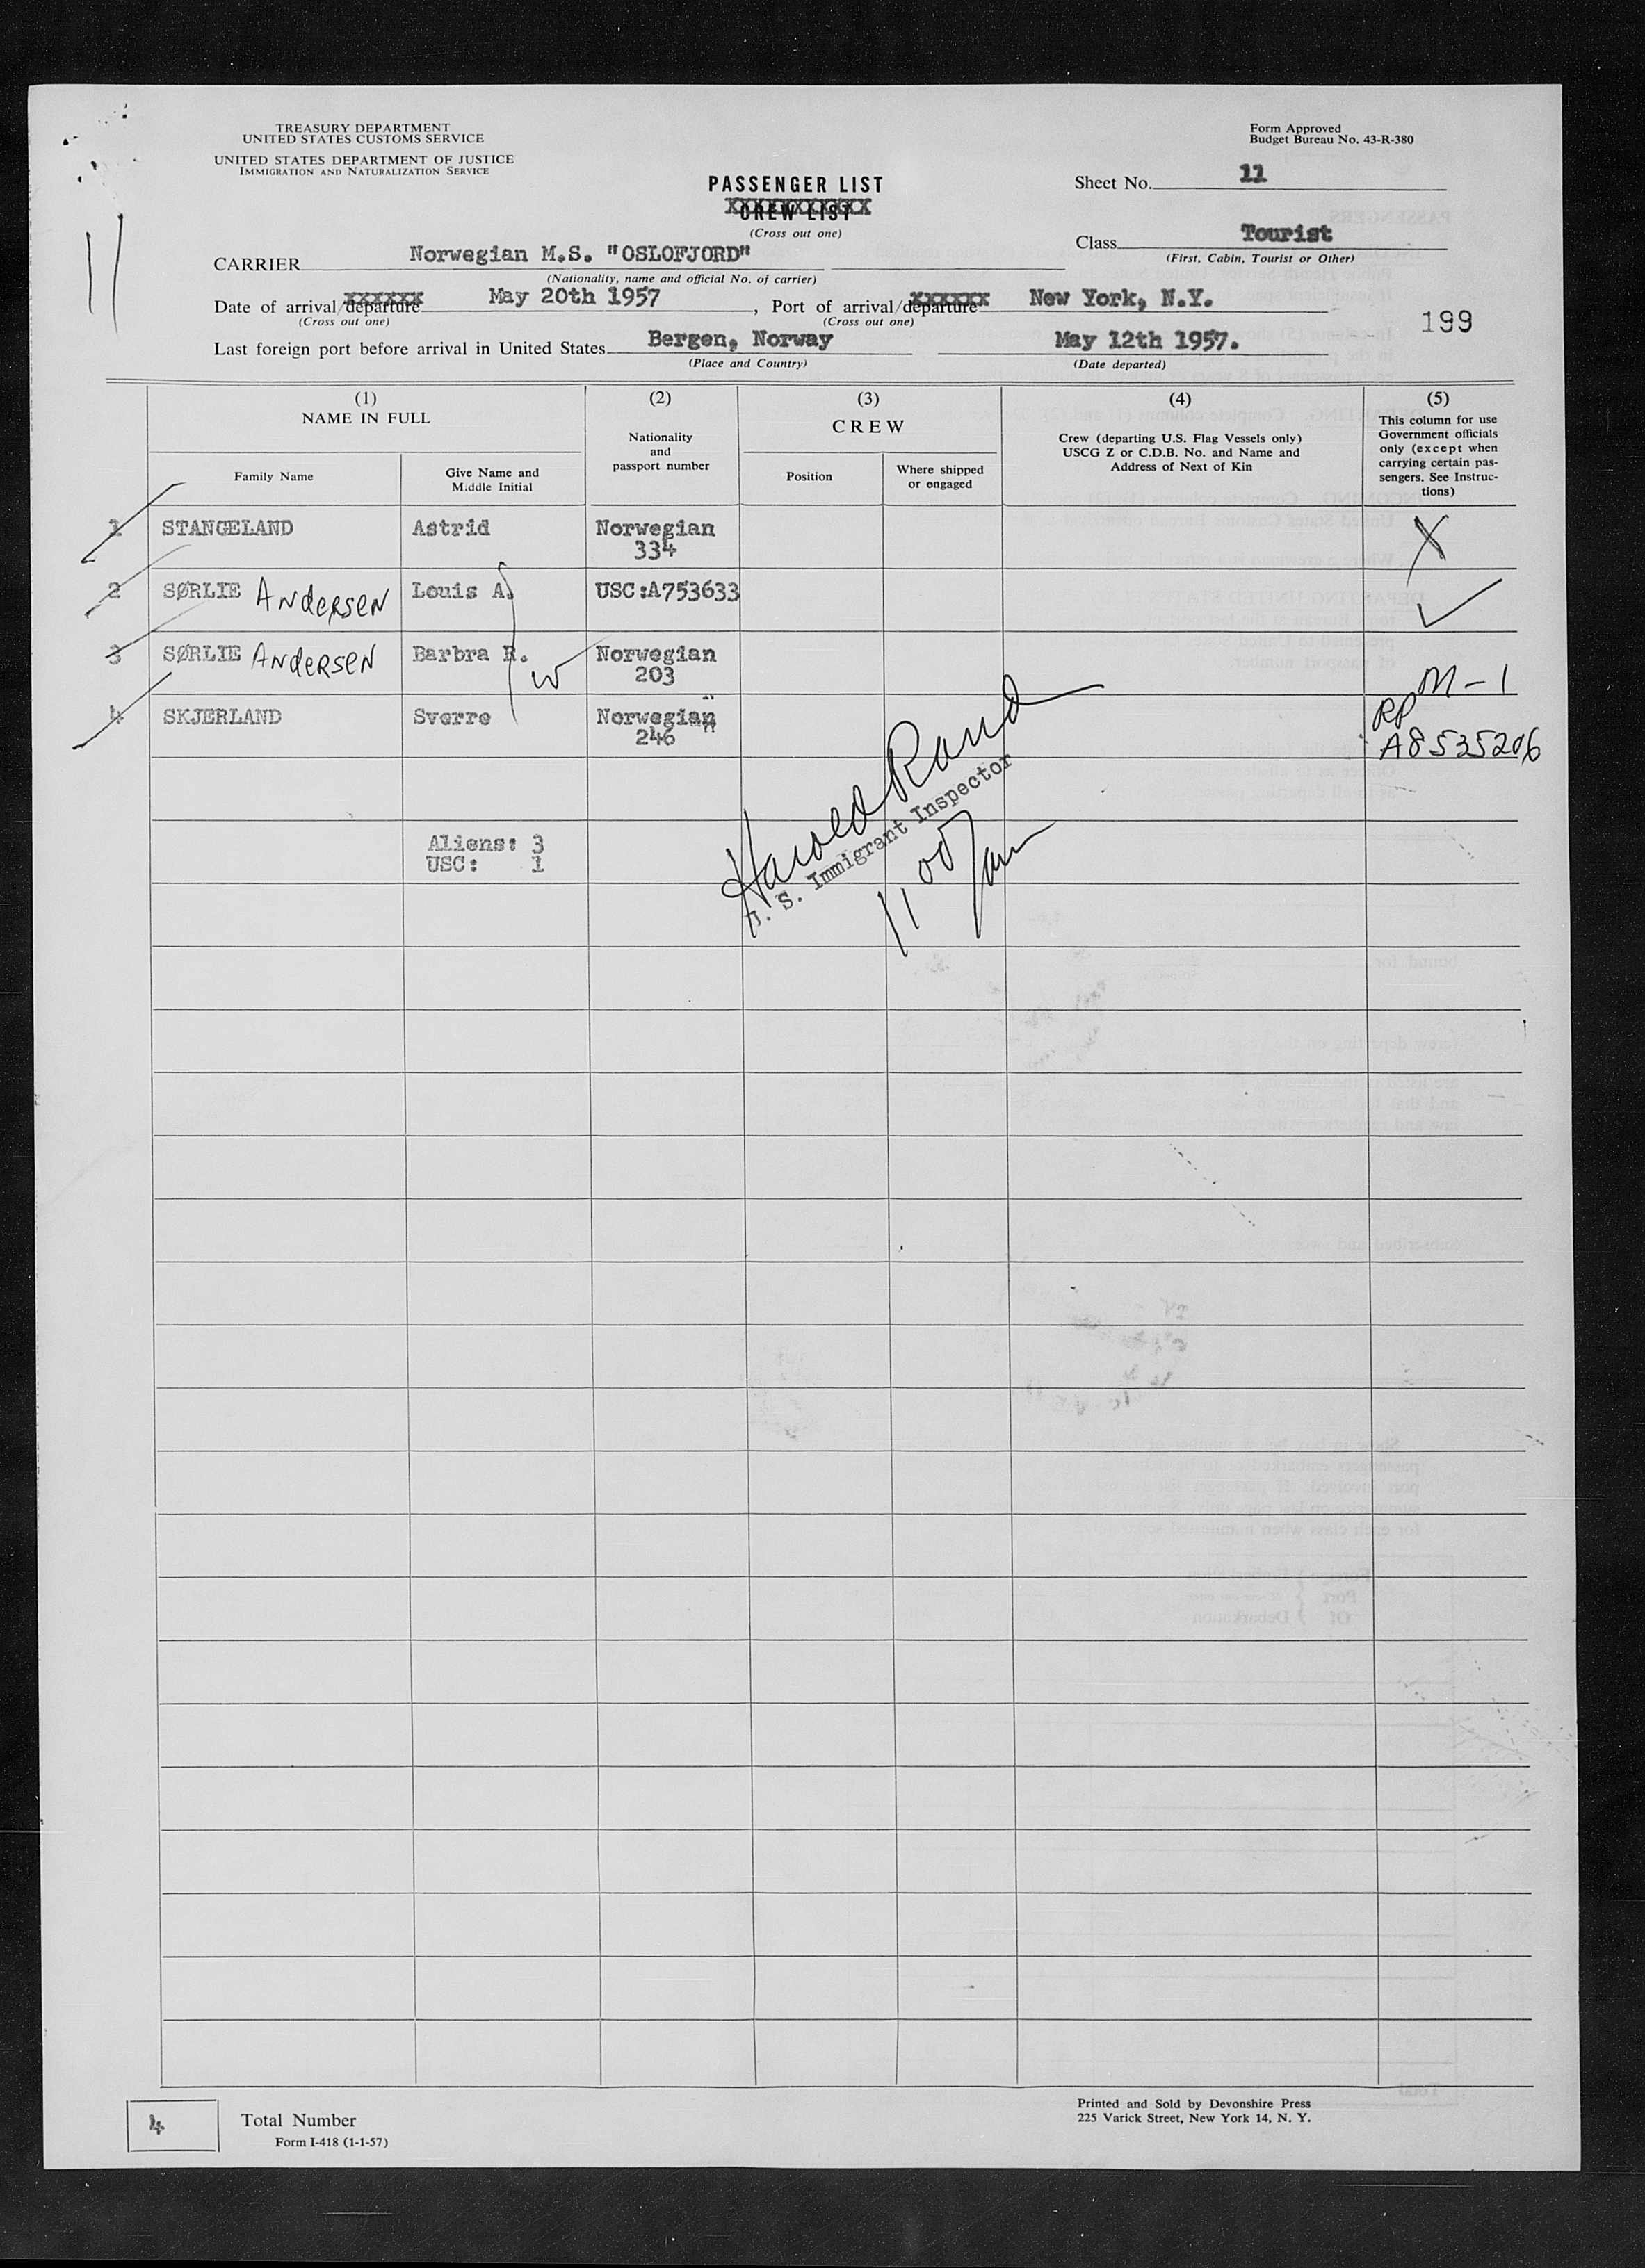 TREASURY DEPARTMENT
UNITED STATES CUSTOMS SERVICE
UNITED STATES DEPARTMENT OF JUSTICE
IMMIGRATION AND NATURALIZATION SERVICE
Form Approved
Budget Bureau No. 43-R-380
PASSENGER LIST
CREW LIST
(Cross out one)
Sheet No. 11
Class Tourist
(First, Cabin, Tourist or Other)
11
CARRIER Norwegian M.S. "OSLOFJORD"
(Nationality, name and official No. of carrier)
Date of arrival/departure May 20th 1957, Port of arrival/departure New York, N.Y.
(Cross out one) (Cross out one)
199
Last foreign port before arrival in United States Bergen, Norway May 12th 1957.
(Place and Country) (Date departed)
(1)
NAME IN FULL
Family Name
Give Name and
Middle Initial
(2)
Nationality
and
passport number
(3)
CREW
Position
Where shipped
or engaged
(4)
Crew (departing U.S. Flag Vessels only)
USCG Z or C.D.B. No. and Name and
Address of Next of Kin
(5)
This column for use
Government officials
only (except when
carrying certain pas-
sengers. See Instruc-
tions)
1 STANGELAND Astrid Norwegian X
334
2 SØRLIE Andersen Louis A. USC:A753633 ✓
3 SØRLIE Andersen Barbra R. W Norwegian M-1
203
4 SKJERLAND Sverre Norwegian RP
246 A8535206
Harold Rand
U. S. Immigrant Inspector
11 00 am
Aliens: 3
USC: 1
4 Total Number
Form I-418 (1-1-57)
Printed and Sold by Devonshire Press
225 Varick Street, New York 14, N. Y.